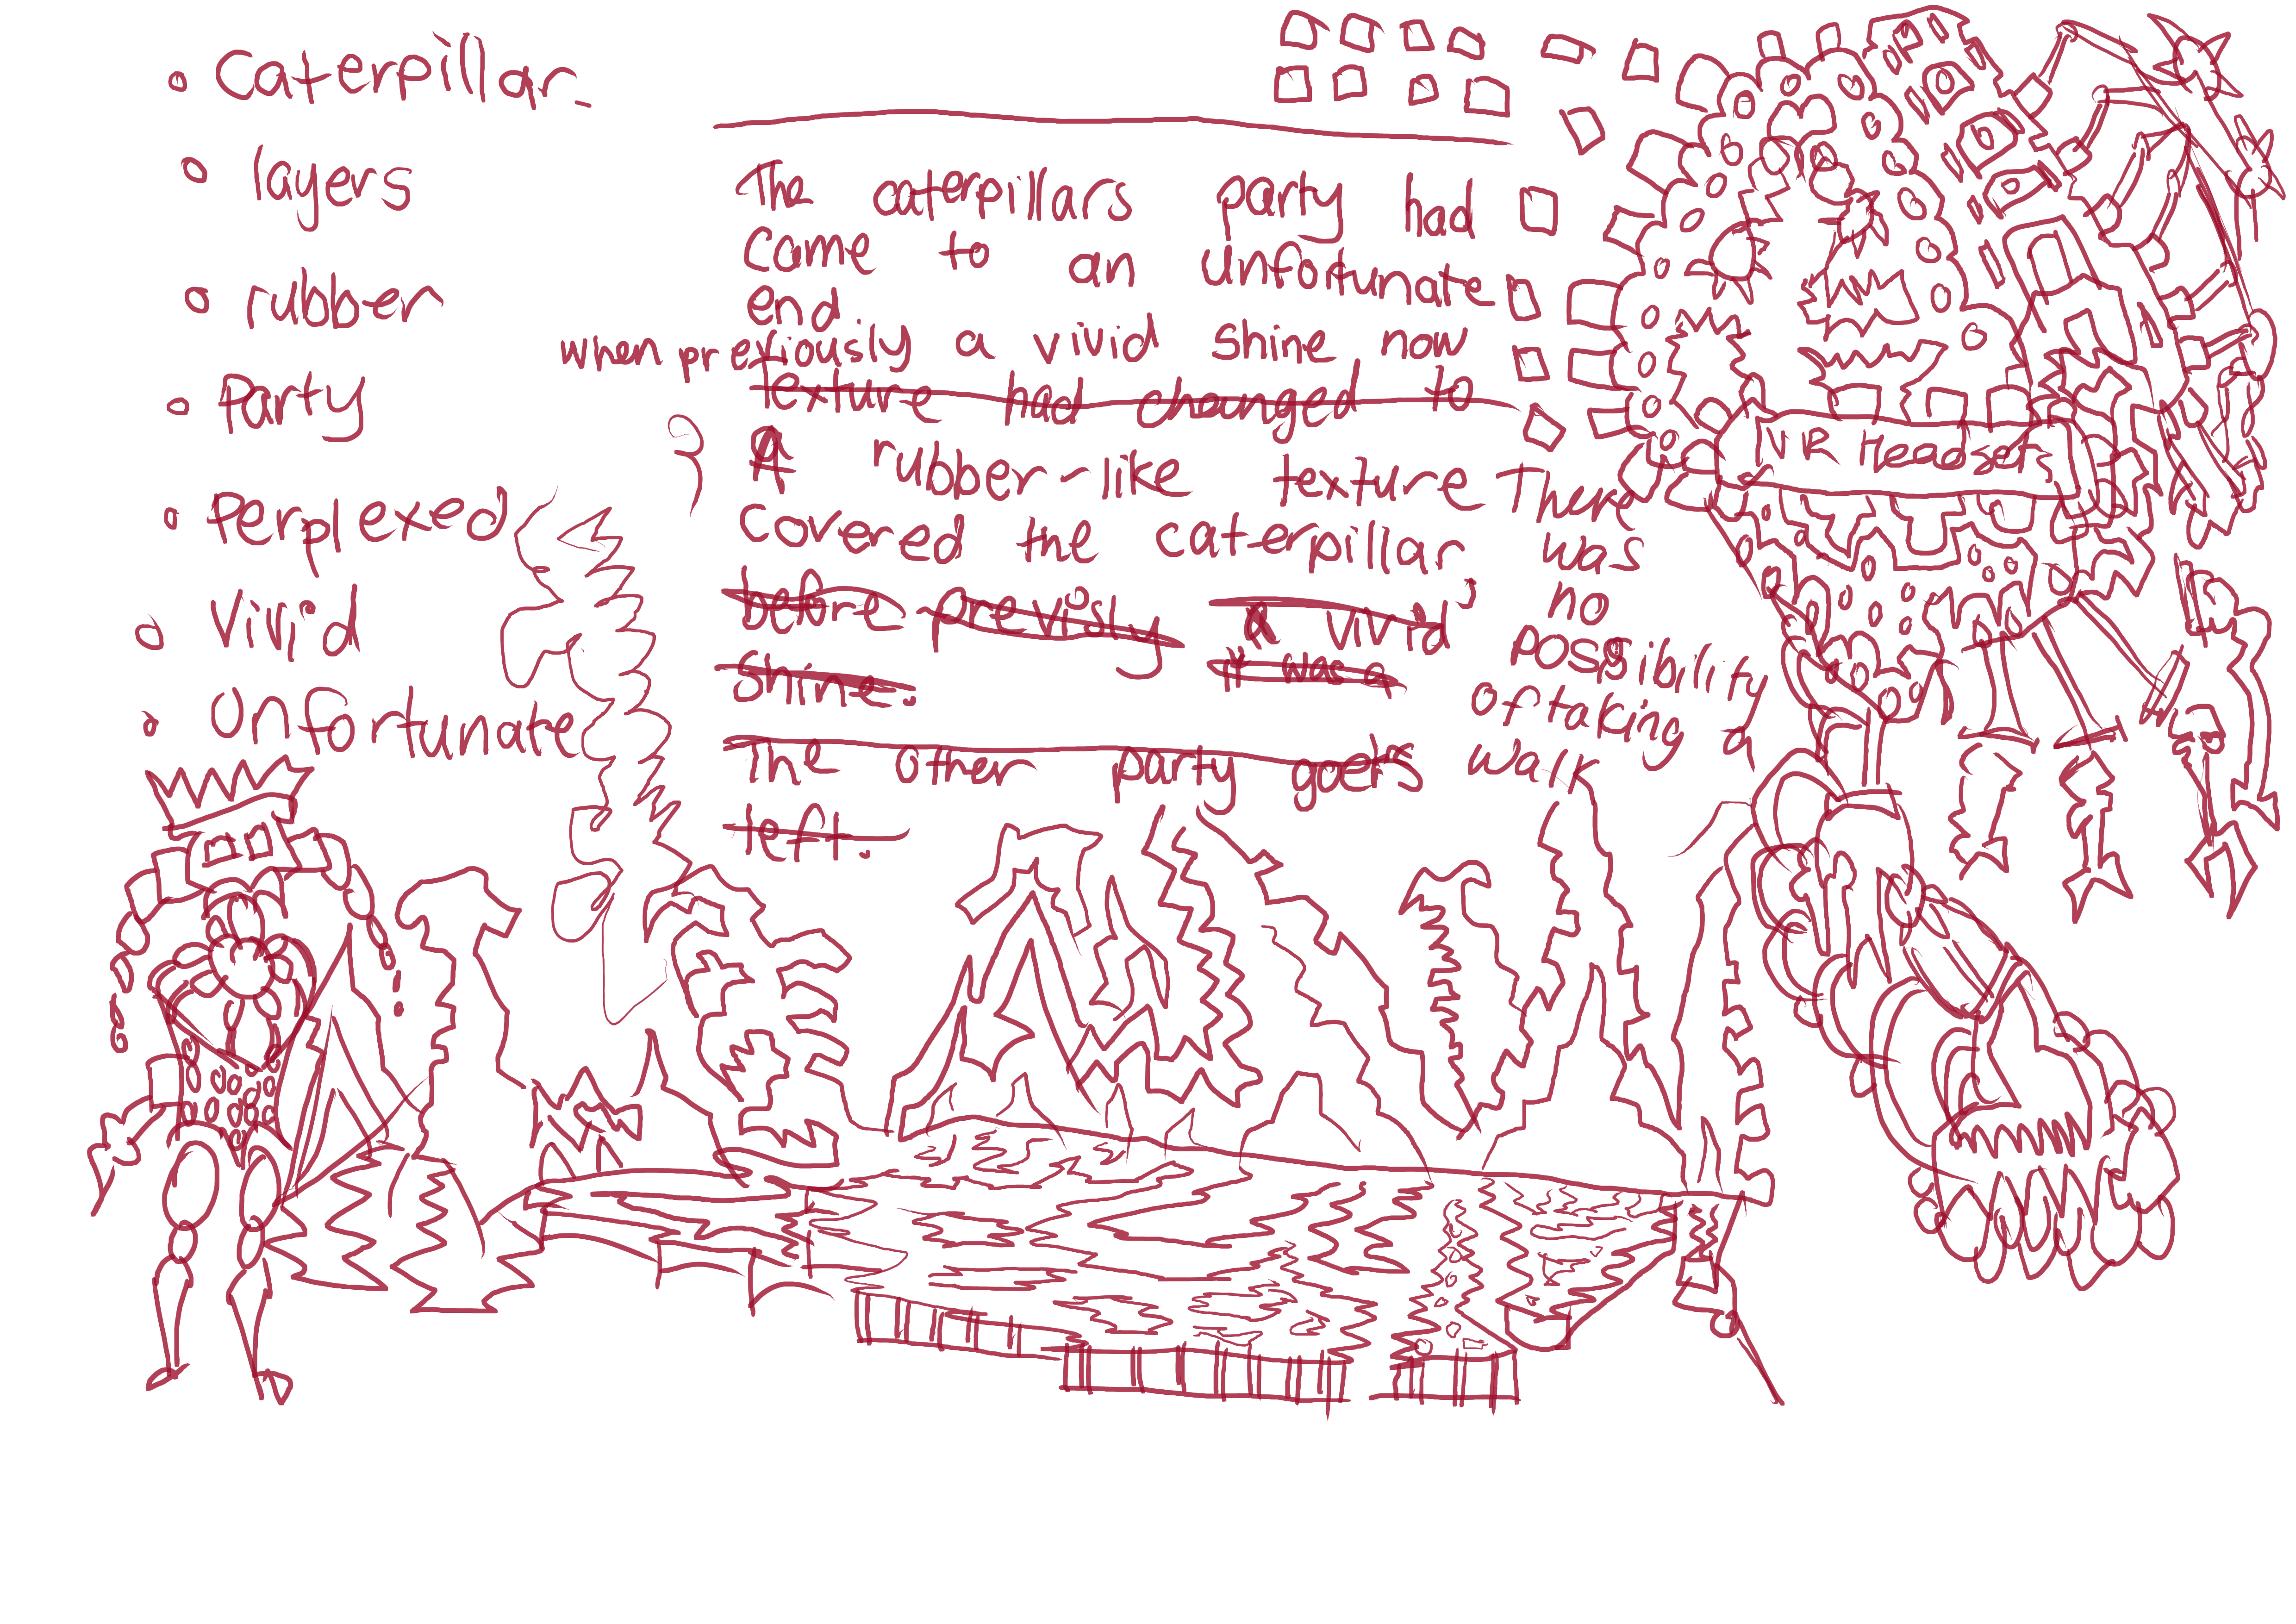 Caterpillar.
layers
rubber
Party
Perplexed
Vivid
Unfortunate
The caterpillars party had
come to an unfortunate
end.
when previously a vivid shine now
texture had changed to
A rubber-like texture
covered the caterpillar,
before previsly a vivid
shine. it was a
The other party goers
left.
There
was
no
possibility
of taking a
walk
VR Headsets